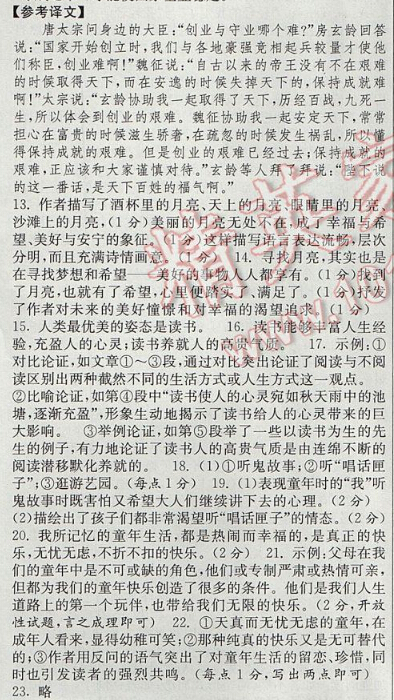 【参考译文】
唐太宗问身边的大臣:“创业与守业哪个难?”房玄龄回答
说:“国家开始创立时,我们与各地豪强竞相起兵较量才使他
们称臣,创业难啊!”魏征说:“自古以来的帝王没有不在艰难
的时候取得天下,而在安逸的时候失掉天下的,保持成就难
啊!”太宗说:“玄龄协助我一起取得了天下,历经百战,九死一
生,所以体会到创业的艰难。魏征协助我一起安定天下,常常
担心在富贵的时候滋生骄奢,在疏忽的时候发生祸乱,所以懂
得保持成就的艰难。但是创业的艰难已经过去;保持成就的
艰难,正应该和大家谨慎对待。”玄龄等人拜了拜说:“陛下说
的这一番话,是天下百姓的福气啊。”
13. 作者描写了酒杯里的月亮、天上的月亮、眼睛里的月亮、
沙滩上的月亮,(1分)美丽的月亮无处不在,成了幸福与希
望、美好与安宁的象征。(1分)这样描写语言表达流畅,层次
分明,而且充满诗情画意。(1分) 14. 寻找月亮,其实也是
在寻找梦想和希望——美好的事物人人都享有。(1分)找到
了月亮,也就有了希望,心里便踏实了、满足了。(1分)抒发
了作者对未来的美好憧憬和对幸福的渴望追求。(1分)
15. 人类最优美的姿态是读书。 16. 读书能够丰富人生经
验,充盈人的心灵;读书养就人的高贵气质。 17. 示例:①
对比论证,如文章①～③段,通过对比突出论证了阅读与不阅
读区别出两种截然不同的生活方式或人生方式这一观点。
②比喻论证,如第④段中“读书使人的心灵宛如秋天雨中的池
塘,逐渐充盈”,形象生动地揭示了读书给人的心灵带来的巨
大影响。 ③举例论证,如第⑤段举了一些以读书为生的先
生的例子,有力地论证了读书人的高贵气质是由连绵不断的
阅读潜移默化养就的。 18. (1)①听鬼故事;②听“唱话匣
子”;③逛游艺园。(每点1分) 19. (1)表现童年时的“我”听
鬼故事时既害怕又希望大人们继续讲下去的心理。(2分)
(2)描绘出了孩子们都非常渴望听“唱话匣子”的情态。(2分)
20. 我所记忆的童年生活,都是热闹而幸福的,是真正的快
乐,无忧无虑,不折不扣的快乐。(2分) 21. 示例:父母在我
们的童年中是不可或缺的角色,他们或专制严肃或热情可亲,
但都为我们的童年快乐创造了很多的条件。他们是我们人生
道路上的第一个玩伴,也带给我们无限的快乐。(2分,开放
性试题,言之成理即可) 22. ①天真而无忧无虑的童年,在
成年人看来,显得幼稚可笑;②那种纯真的快乐又是无可替代
的;③作者用反问的语气突出了对童年生活的留恋、珍惜,同
时也引发读者的强烈共鸣。(每点1分,写出两点即可)
23. 略